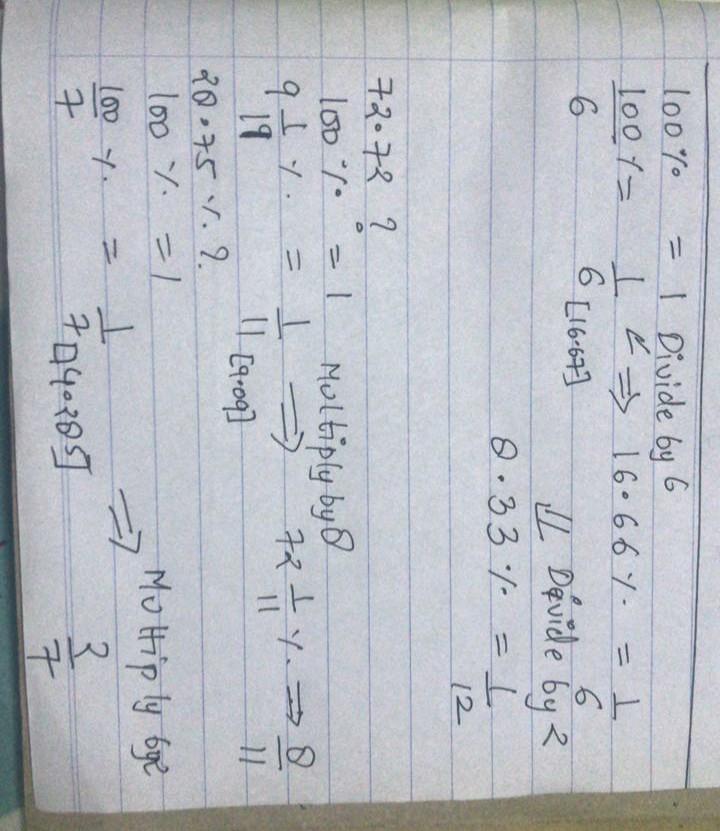 100% = 1 Divide by 6
100/6 % = 1/6 [16.67] ⇒ 16.66 % = 1/6
⇓ Devide by 2
8.33 % = 1/12
72.72 ?
100 % = 1 Multiply by 8
9 1/11 % = 1/11 [9.09] ⇒ 72 1/11 % ⇒ 8/11
28.75 % ?
100 % = 1
100/7 % = 1/7 [14.285] ⇒ Multiply by 2 2/7